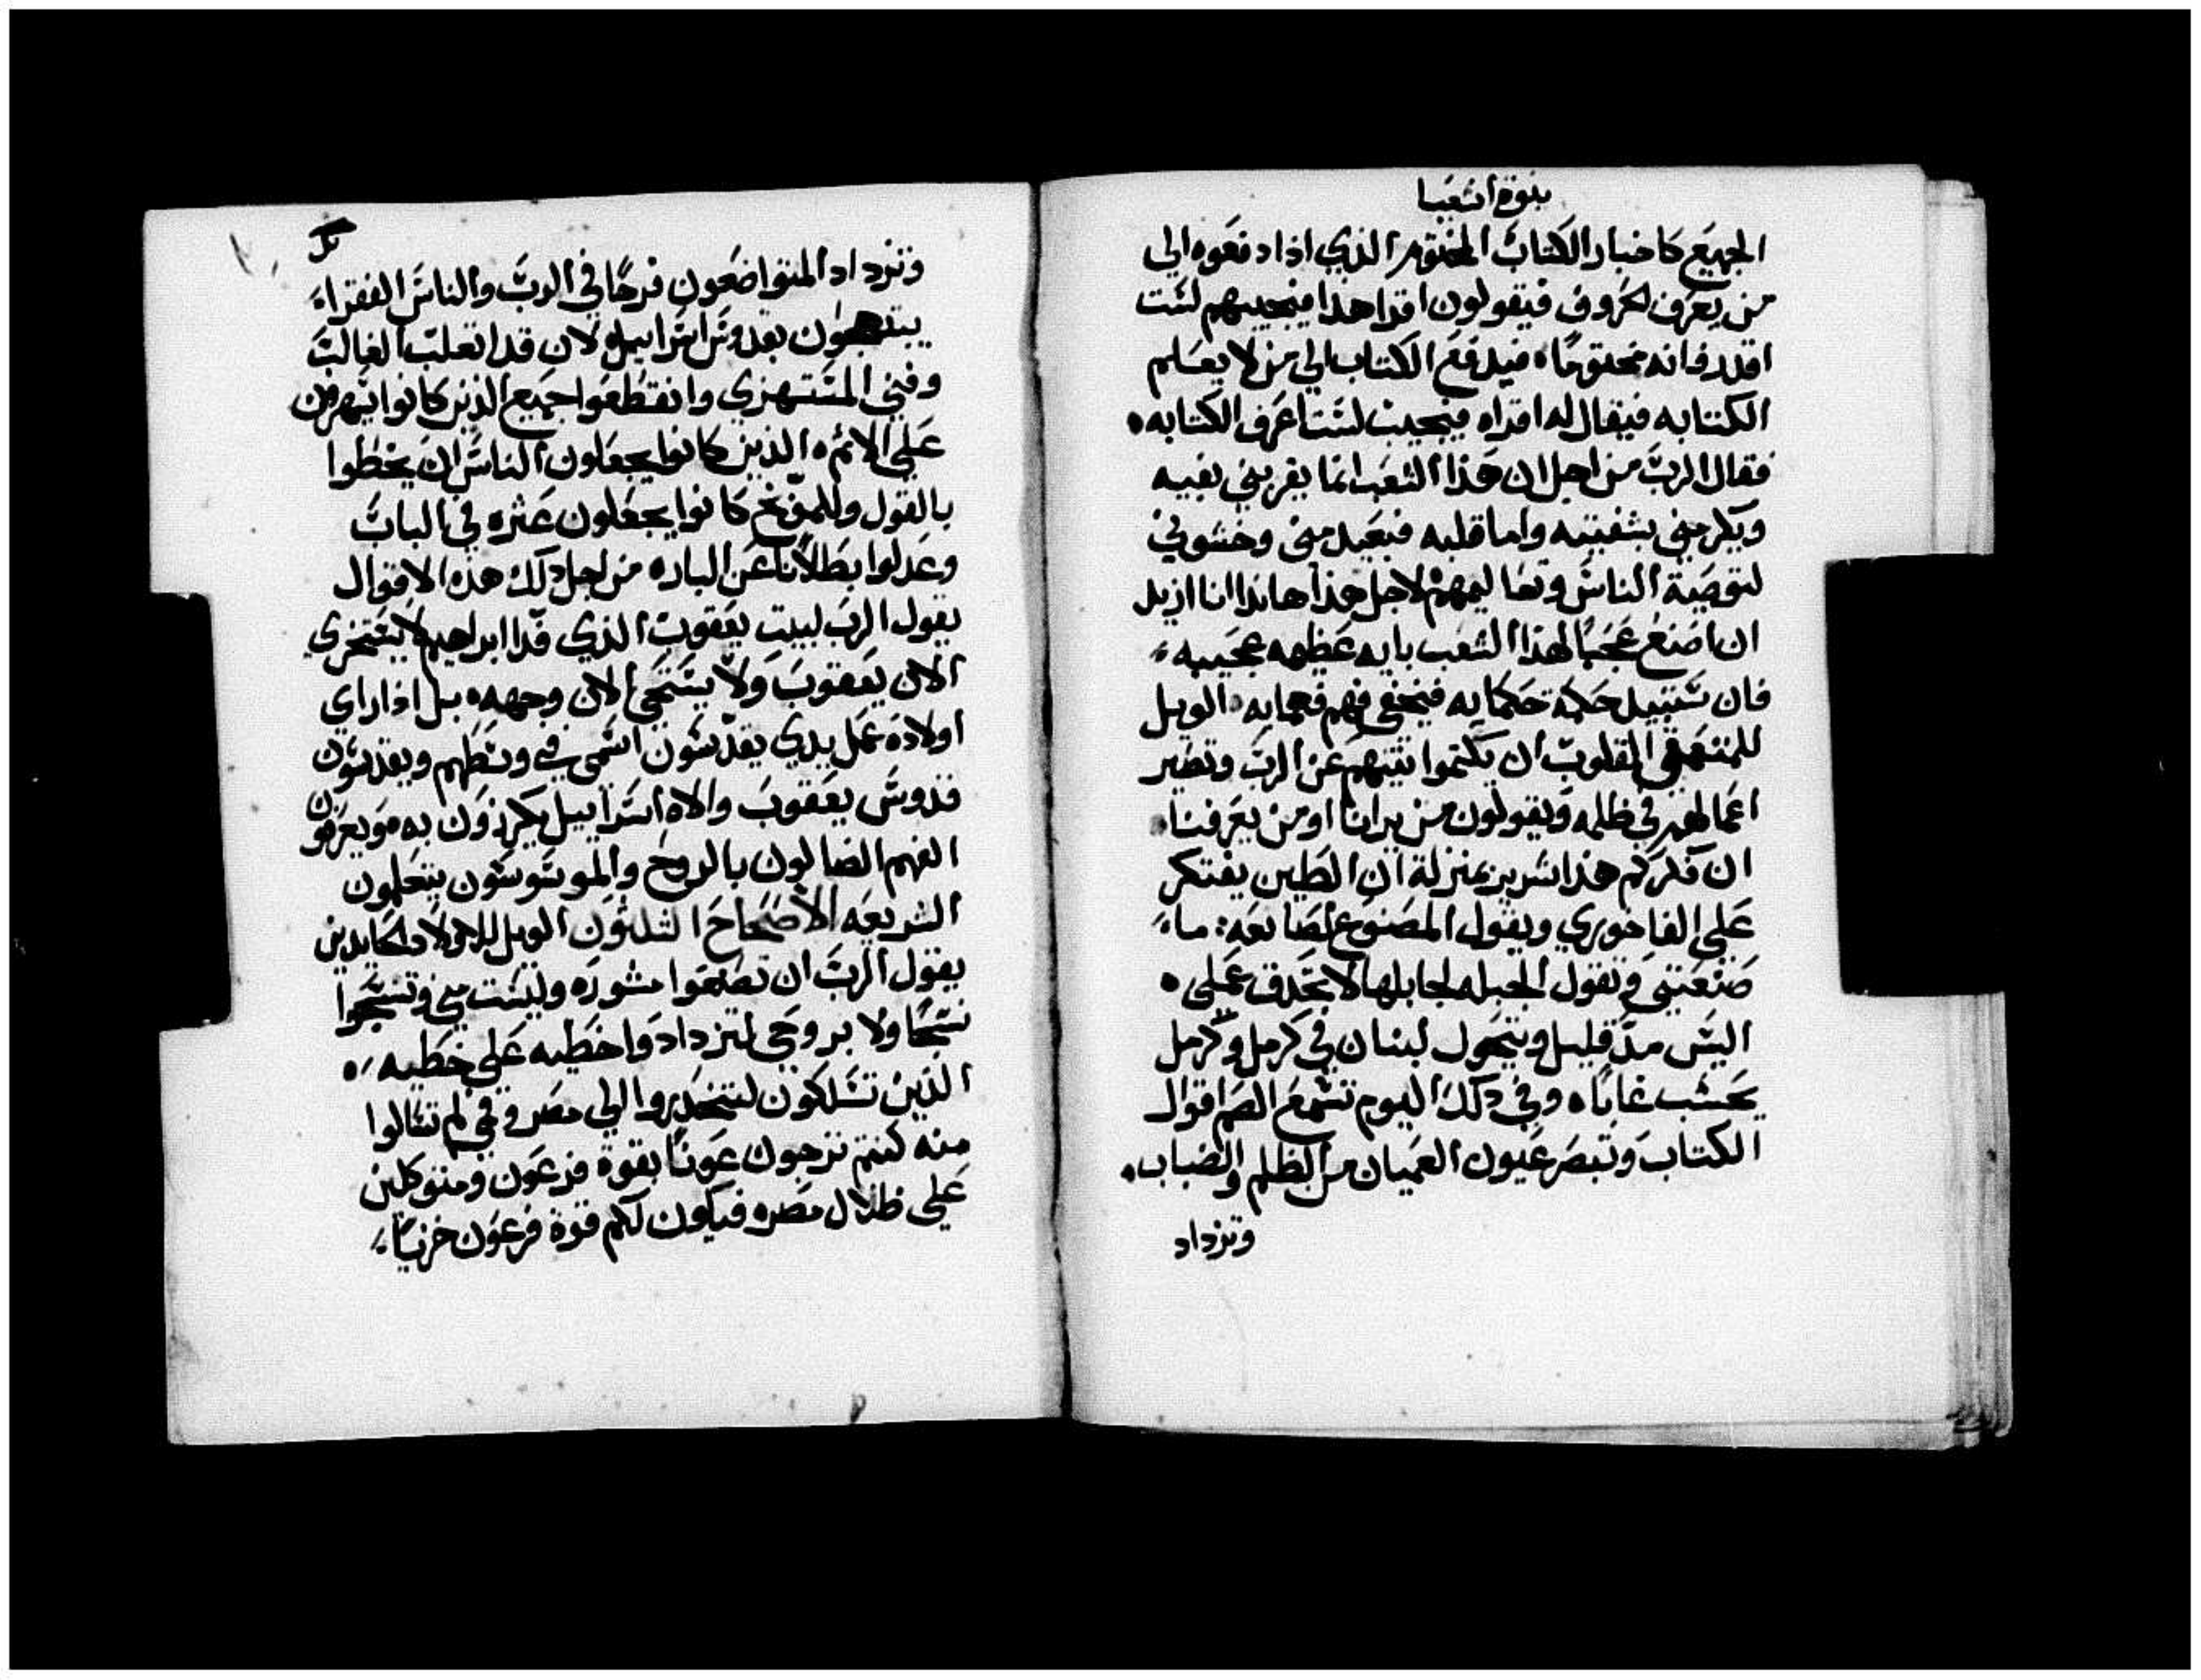 نبوة اشعيا
الجميع كاخبار الكتاب المختوم الذي اذا دفعوه الي
من يعرف الحروف فيقولون اقرا هذا فيجيبهم لست
اقدر فانه مختومًا ه فيدفع الكتاب الي من لا يعلم
الكتابه فيقال له اقراه فيجيب لست اعرف الكتابه ه
فقال الرب من اجل ان هذا الشعب انما يقربني بفيه
ويكرمني بشفتيه واما قلبه فبعيد مني وخشوني
لتوصية الناس وتعاليمهم لاجل هذا هانذا انا ازيد
ان اصنع عجبًا لهذا الشعب بايه عظيمه عجيبه
فان ستبيد حكمة حكمايه فيختفي فهم فهمايه الويل
للمتعمقي القلوب ان يكتموا نيتهم عن الرب وتصير
اعمالهم في ظلمه ويقولون من يرانا او من يعرفنا
ان فكركم هذا شرير بمنزلة ان الطين يفتكر
علي الفاخوري ويقول المصنوع لصانعه : ما
صنعتني وتقول الجبله لجابلها لا تحدق عملي ه
اليس مدّ قليل ويتحول لبنان في كرمل وكرمل
يحسب غابًا ه وفي ذلك اليوم تسمع الصم اقوال
الكتاب وتبصر عيون العميان من الظلم والضباب
وتزداد
وتزداد المتواضعون فرحًا في الرب والناس الفقراء
يبتهجون بقدوس اسراييل لان قد انغلب الغالب
وفني المستهزي وانقطعوا جميع الذين كانوا يسهرون
علي الاثم ه الذين كانوا يجعلون الناس ان يخطوا
بالقول وللموبّخ كانوا يجعلون عثره في الباب
وعدلوا بطلانًا عن الباره من اجل ذلك هذه الاقوال
يقول الرب لبيت يعقوب الذي فدا ابراهيم لا يستخزي
الان يعقوب ولا يستحي الان وجهه ه بل اذا راي
اولاده عمل يدي يقدسون اسمي في وسطهم ويقدسون
قدوس يعقوب والاه اسراييل يكرزون به ه ويعرفون
الفهم الضالون بالروح والموسوسون يتعلمون
الشريعه الاصحاح الثلثون الويل للاولاد الحايدين
يقول الرب ان تصنعوا مشوره وليست مني وتنسجوا
نسجًا ولا بروحي لتزدادوا خطيه علي خطيه ه
الذين تسلكون لتنحدروا الي مصر وفي لم تسالوا
منه كنتم ترجون عونًا بقوة فرعون ومتوكلين
علي ظلال مصر ه فيكون لكم قوة فرعون خزيًا